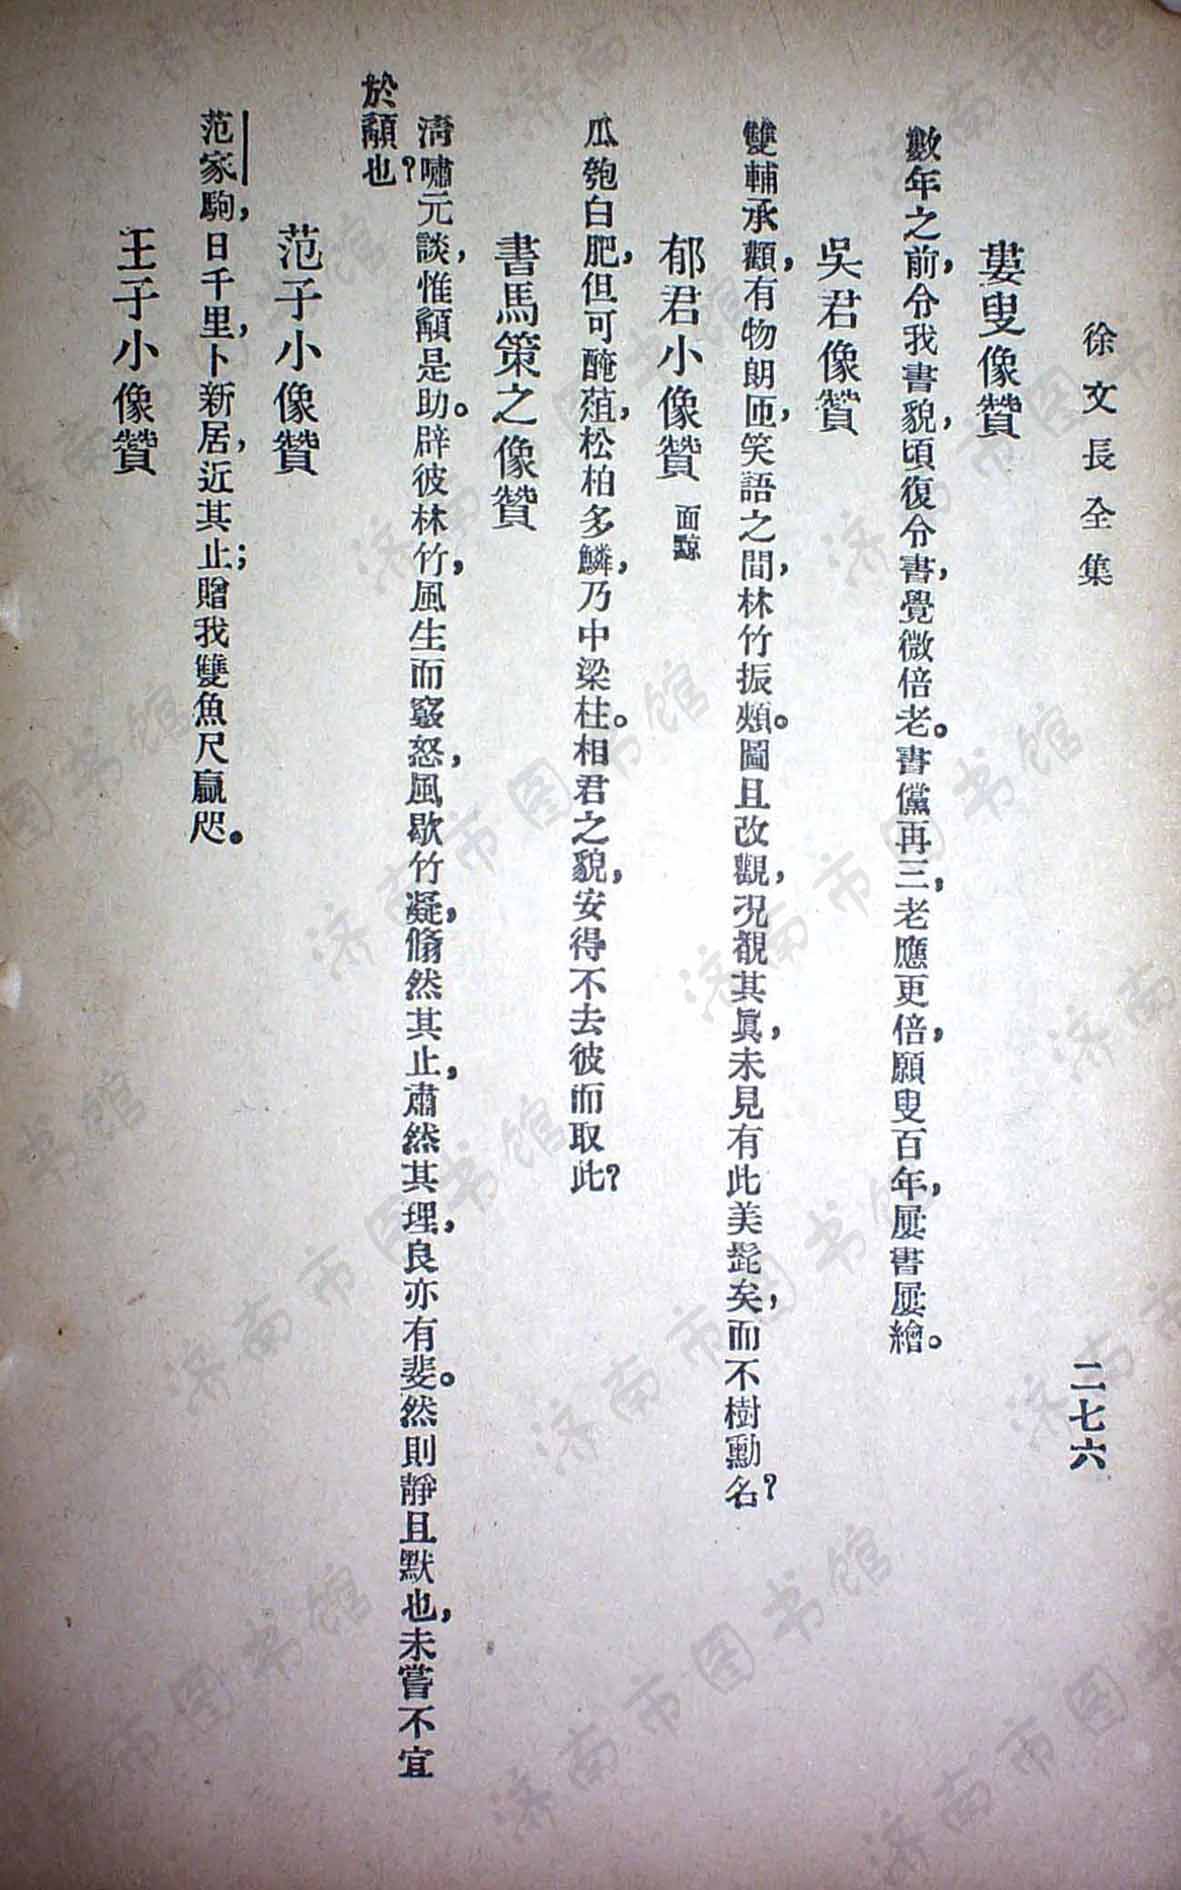 徐文長全集
二七六
婁叟像贊
數年之前，令我書貌，頃復令書，覺微倍老。書儻再三，老應更倍，願叟百年，屢書屢繪。
吳君像贊
雙輔承顴，有物朗匝，笑語之間，林竹振頰。圖且改觀，況覩其眞，未見有此美髭矣，而不樹勳名？
郁君小像贊 面黥
瓜匏白肥，但可醃葅，松柏多鱗，乃中梁柱。相君之貌，安得不去彼而取此？
書馬策之像贊
淸嘯元談，惟顬是助。辟彼林竹，風生而竅怒，風歇竹凝，翛然其止，肅然其理，良亦有斐。然則靜且默也，未嘗不宜
於顬也？
范子小像贊
范家駒，日千里，卜新居，近其止；贈我雙魚尺贏咫。
王子小像贊